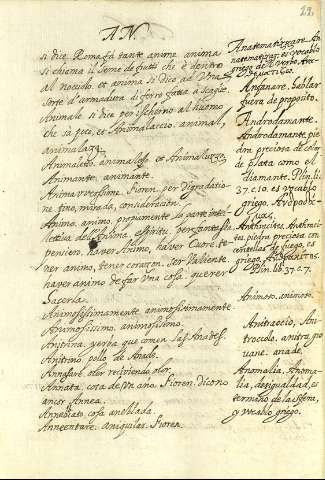 22
AN.
si dice Roma fá tante anime anima
si chiama il seme de frutti che è dentro
al nociolo. et anima si dice ad una
sorte d'armadura di ferro fatta a scaglie.
Animale si dice per ischerno al huomo
che sa poco, et Animalaccio, animal,
animalazo.
Animaletto, animalejo. et Animaluzzo
Animante, animante.
Animavversione. Fioren. per
ne fino, mirado, consideracion.
Animo, animo, propiamente la parte intel-
lettiva dell'Anima, espiritu, per
pensiero, haver Animo, haver Cuore, te-
ner animo, tener coraçon. ser Valiente.
haver animo de far una cosa, querer
hacerla.
Animosissimamente animosissimamente
Animosissimo. animosissimo.
yerba que comen las Anades.
Anitrino, pollo de Anade.
Annasare, oler recibiendo olor.
Annata, cosa de un año. Fioren. dicono
ancor Annea.
Annebiato, cosa aneblada.
aniquilar. Fioren.
Anatematizzare. Ana-
tematizar. es vocablo
griego de el verbo
Anfanare, hablar
fuera de proposito.
Androdamante
Androdamante, pie-
dra preciosa de color
de plata como el
diamante. Plin. li.
37. c. 10. es vocablo
griego.
piedra preciosa con
centellas de fuego, es
griego,
Plin. lib. 37. c. 7.
Animoso, animoso.
Anitraccio, Ani-
trocolo, anitra gio-
vane. anade.
Anomalia, Anoma-
lia, desigualdad, es
termino de la
y vocablo griego.